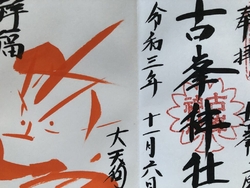 奉拝
古峯神社
令和三年十一月六日
大天狗
祥福